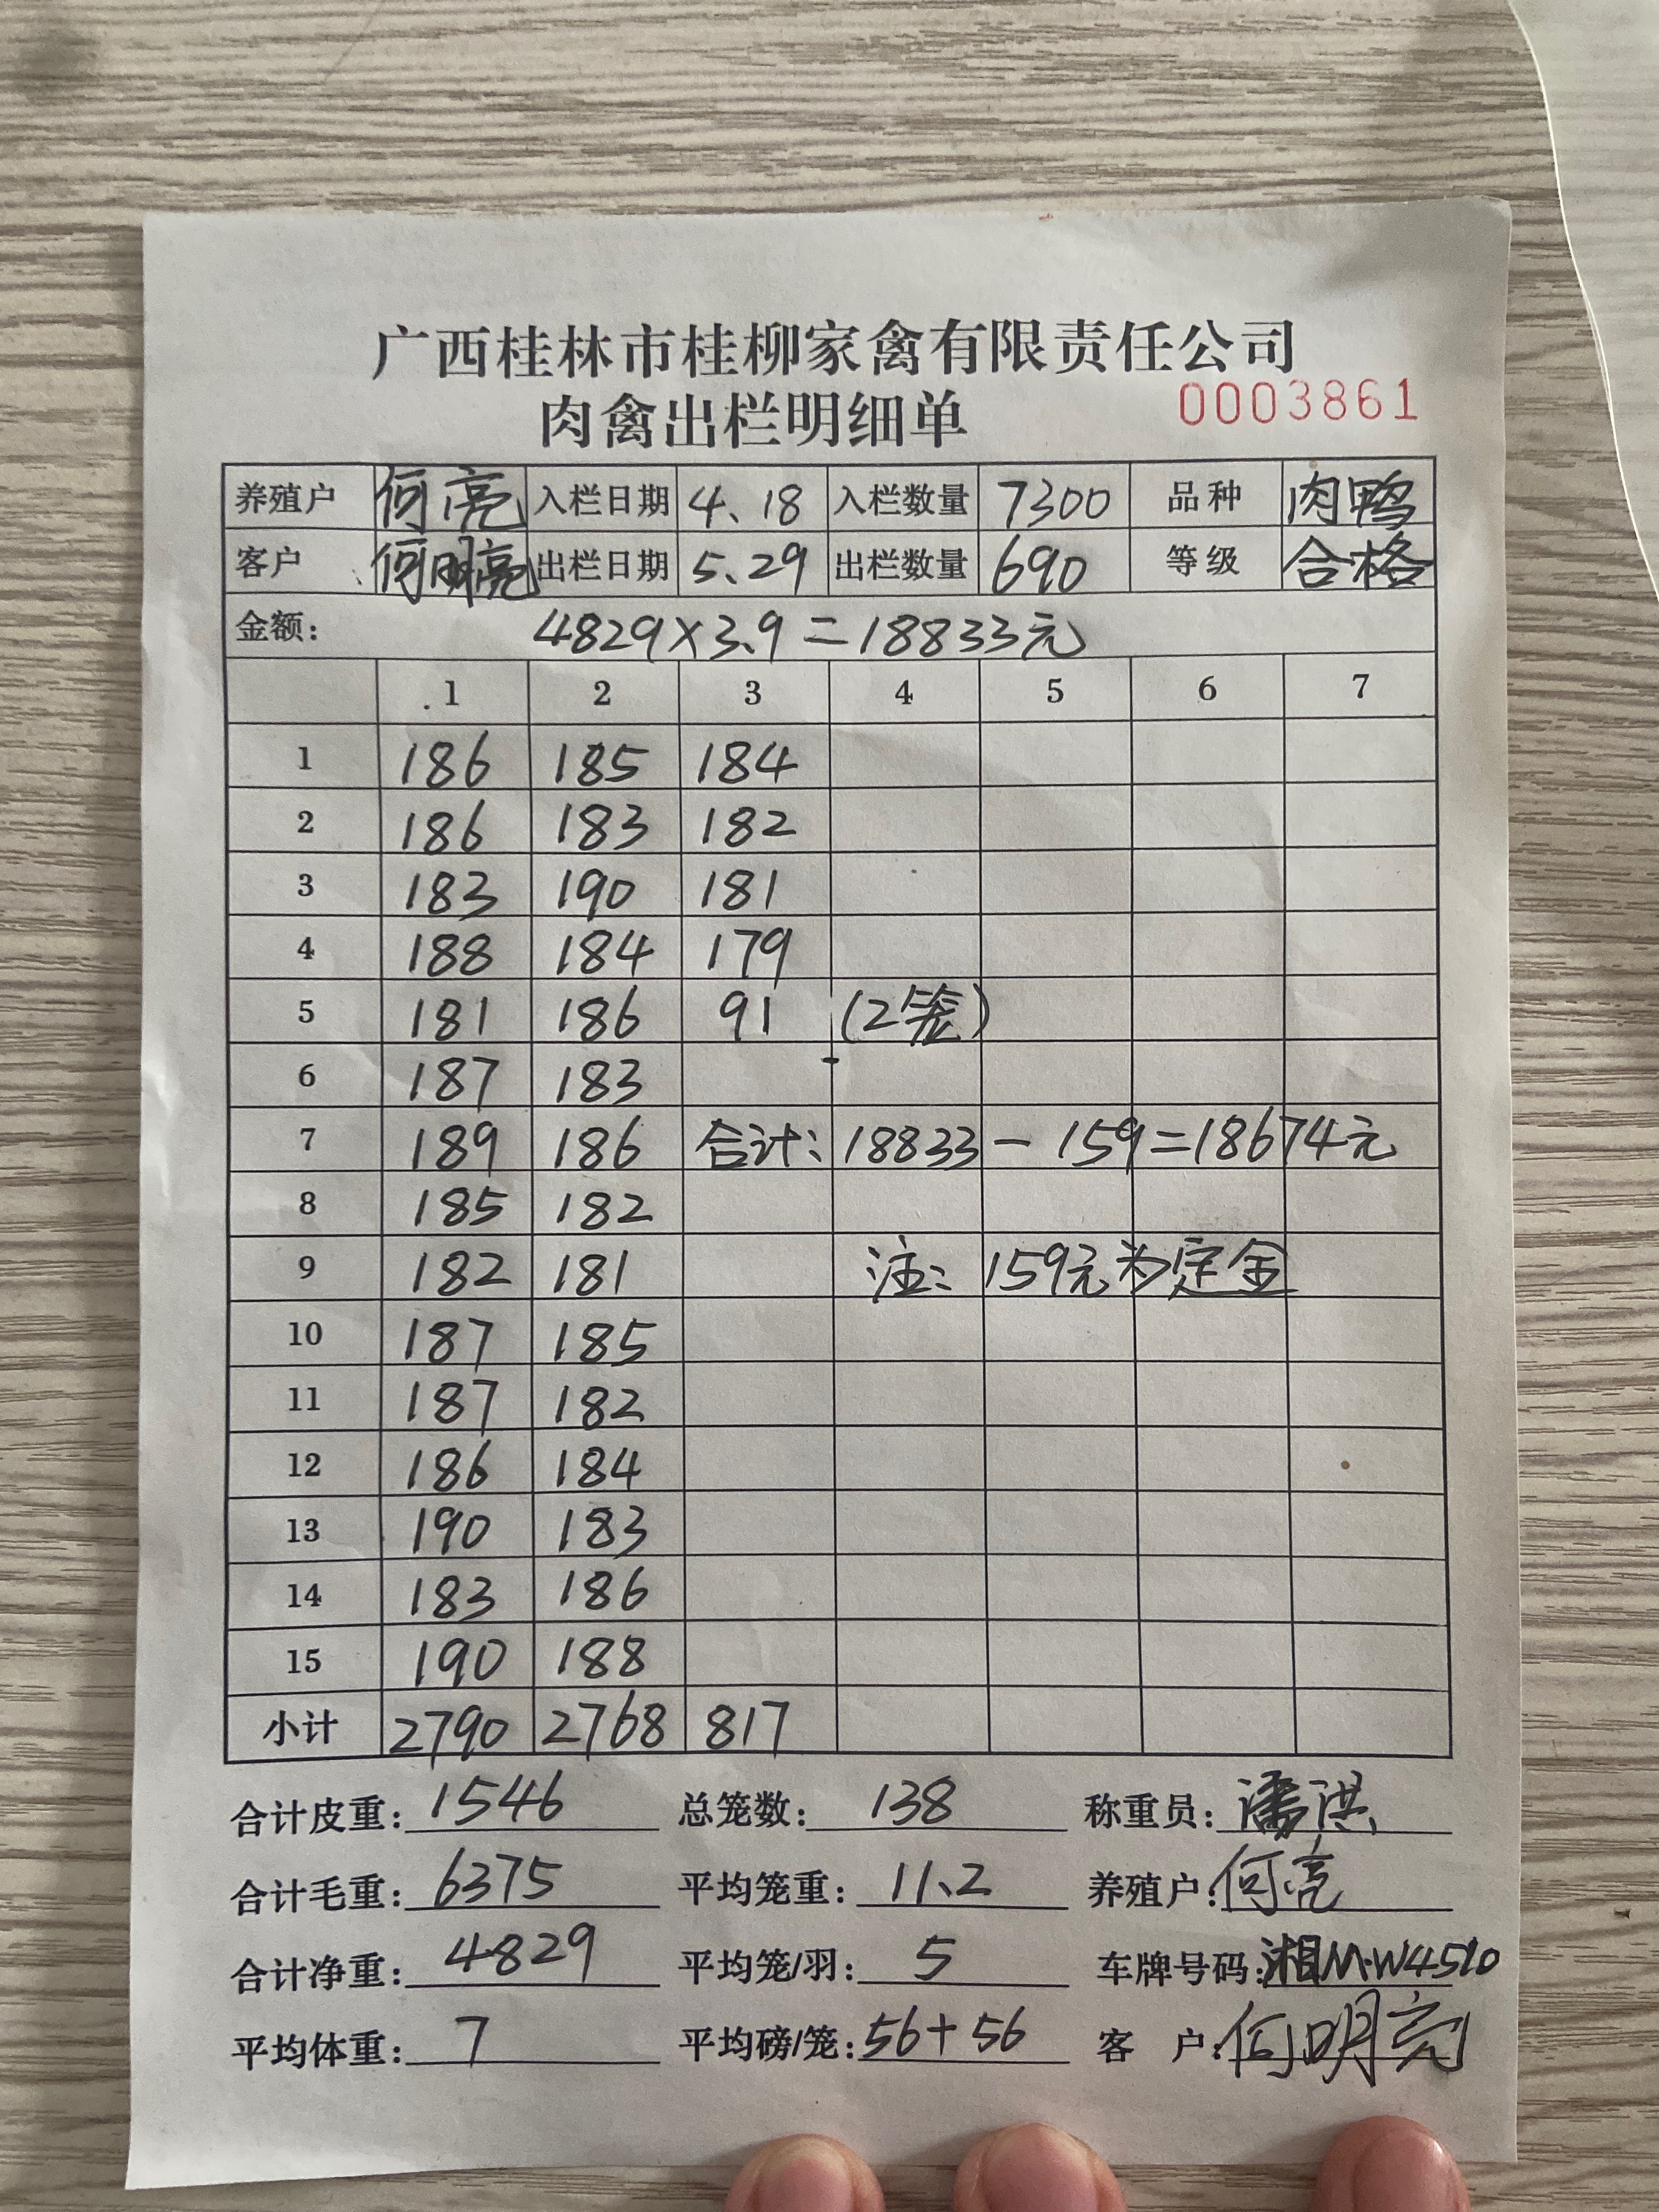 广西桂林市桂柳家禽有限责任公司
肉禽出栏明细单 0003861
养殖户 何亮 入栏日期 4、18 入栏数量 7300 品种 肉鸭
客户 何明亮 出栏日期 5、29 出栏数量 690 等级 合格
金额: 4829×3.9=18833元
1 2 3 4 5 6 7
1 186 185 184
2 186 183 182
3 183 190 181
4 188 184 179
5 181 186 91 (2笼)
6 187 183
7 189 186 合计: 18833-159=18674元
8 185 182
9 182 181 注: 159元为定金
10 187 185
11 187 182
12 186 184
13 190 183
14 183 186
15 190 188
小计 2790 2768 817
合计皮重: 1546 总笼数: 138 称重员: 潘洪
合计毛重: 6375 平均笼重: 11.2 养殖户: 何亮
合计净重: 4829 平均笼/羽: 5 车牌号码: 湘M·W4510
平均体重: 7 平均磅/笼: 56+56 客户: 何明亮